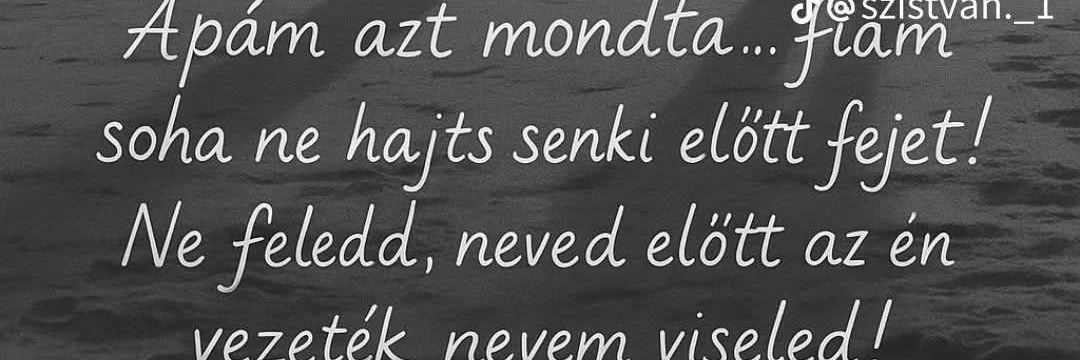 @szistvan._1
Apám azt mondta... fiam
soha ne hajts senki előtt fejet!
Ne feledd, neved előtt az én
vezeték nevem viseled!